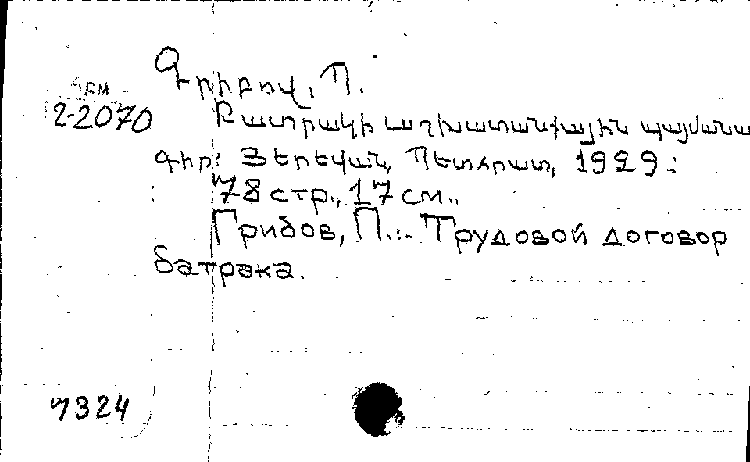 Գրիբով, Պ.
Арм
2-2070
Բատրակի աշխատանքային պայմանա
գիր: Յերեվան, Պետհրատ, 1929:
78 стр., 17 см..
Грибов, П... Трудовой договор
батрака.
7324